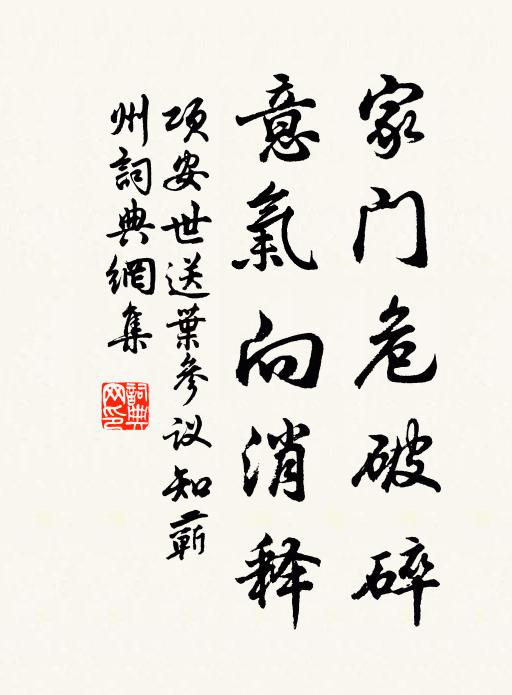 家门危破碎
意氣向消释
项安世送葉參议知蘄
州詞典網集
詞典网印